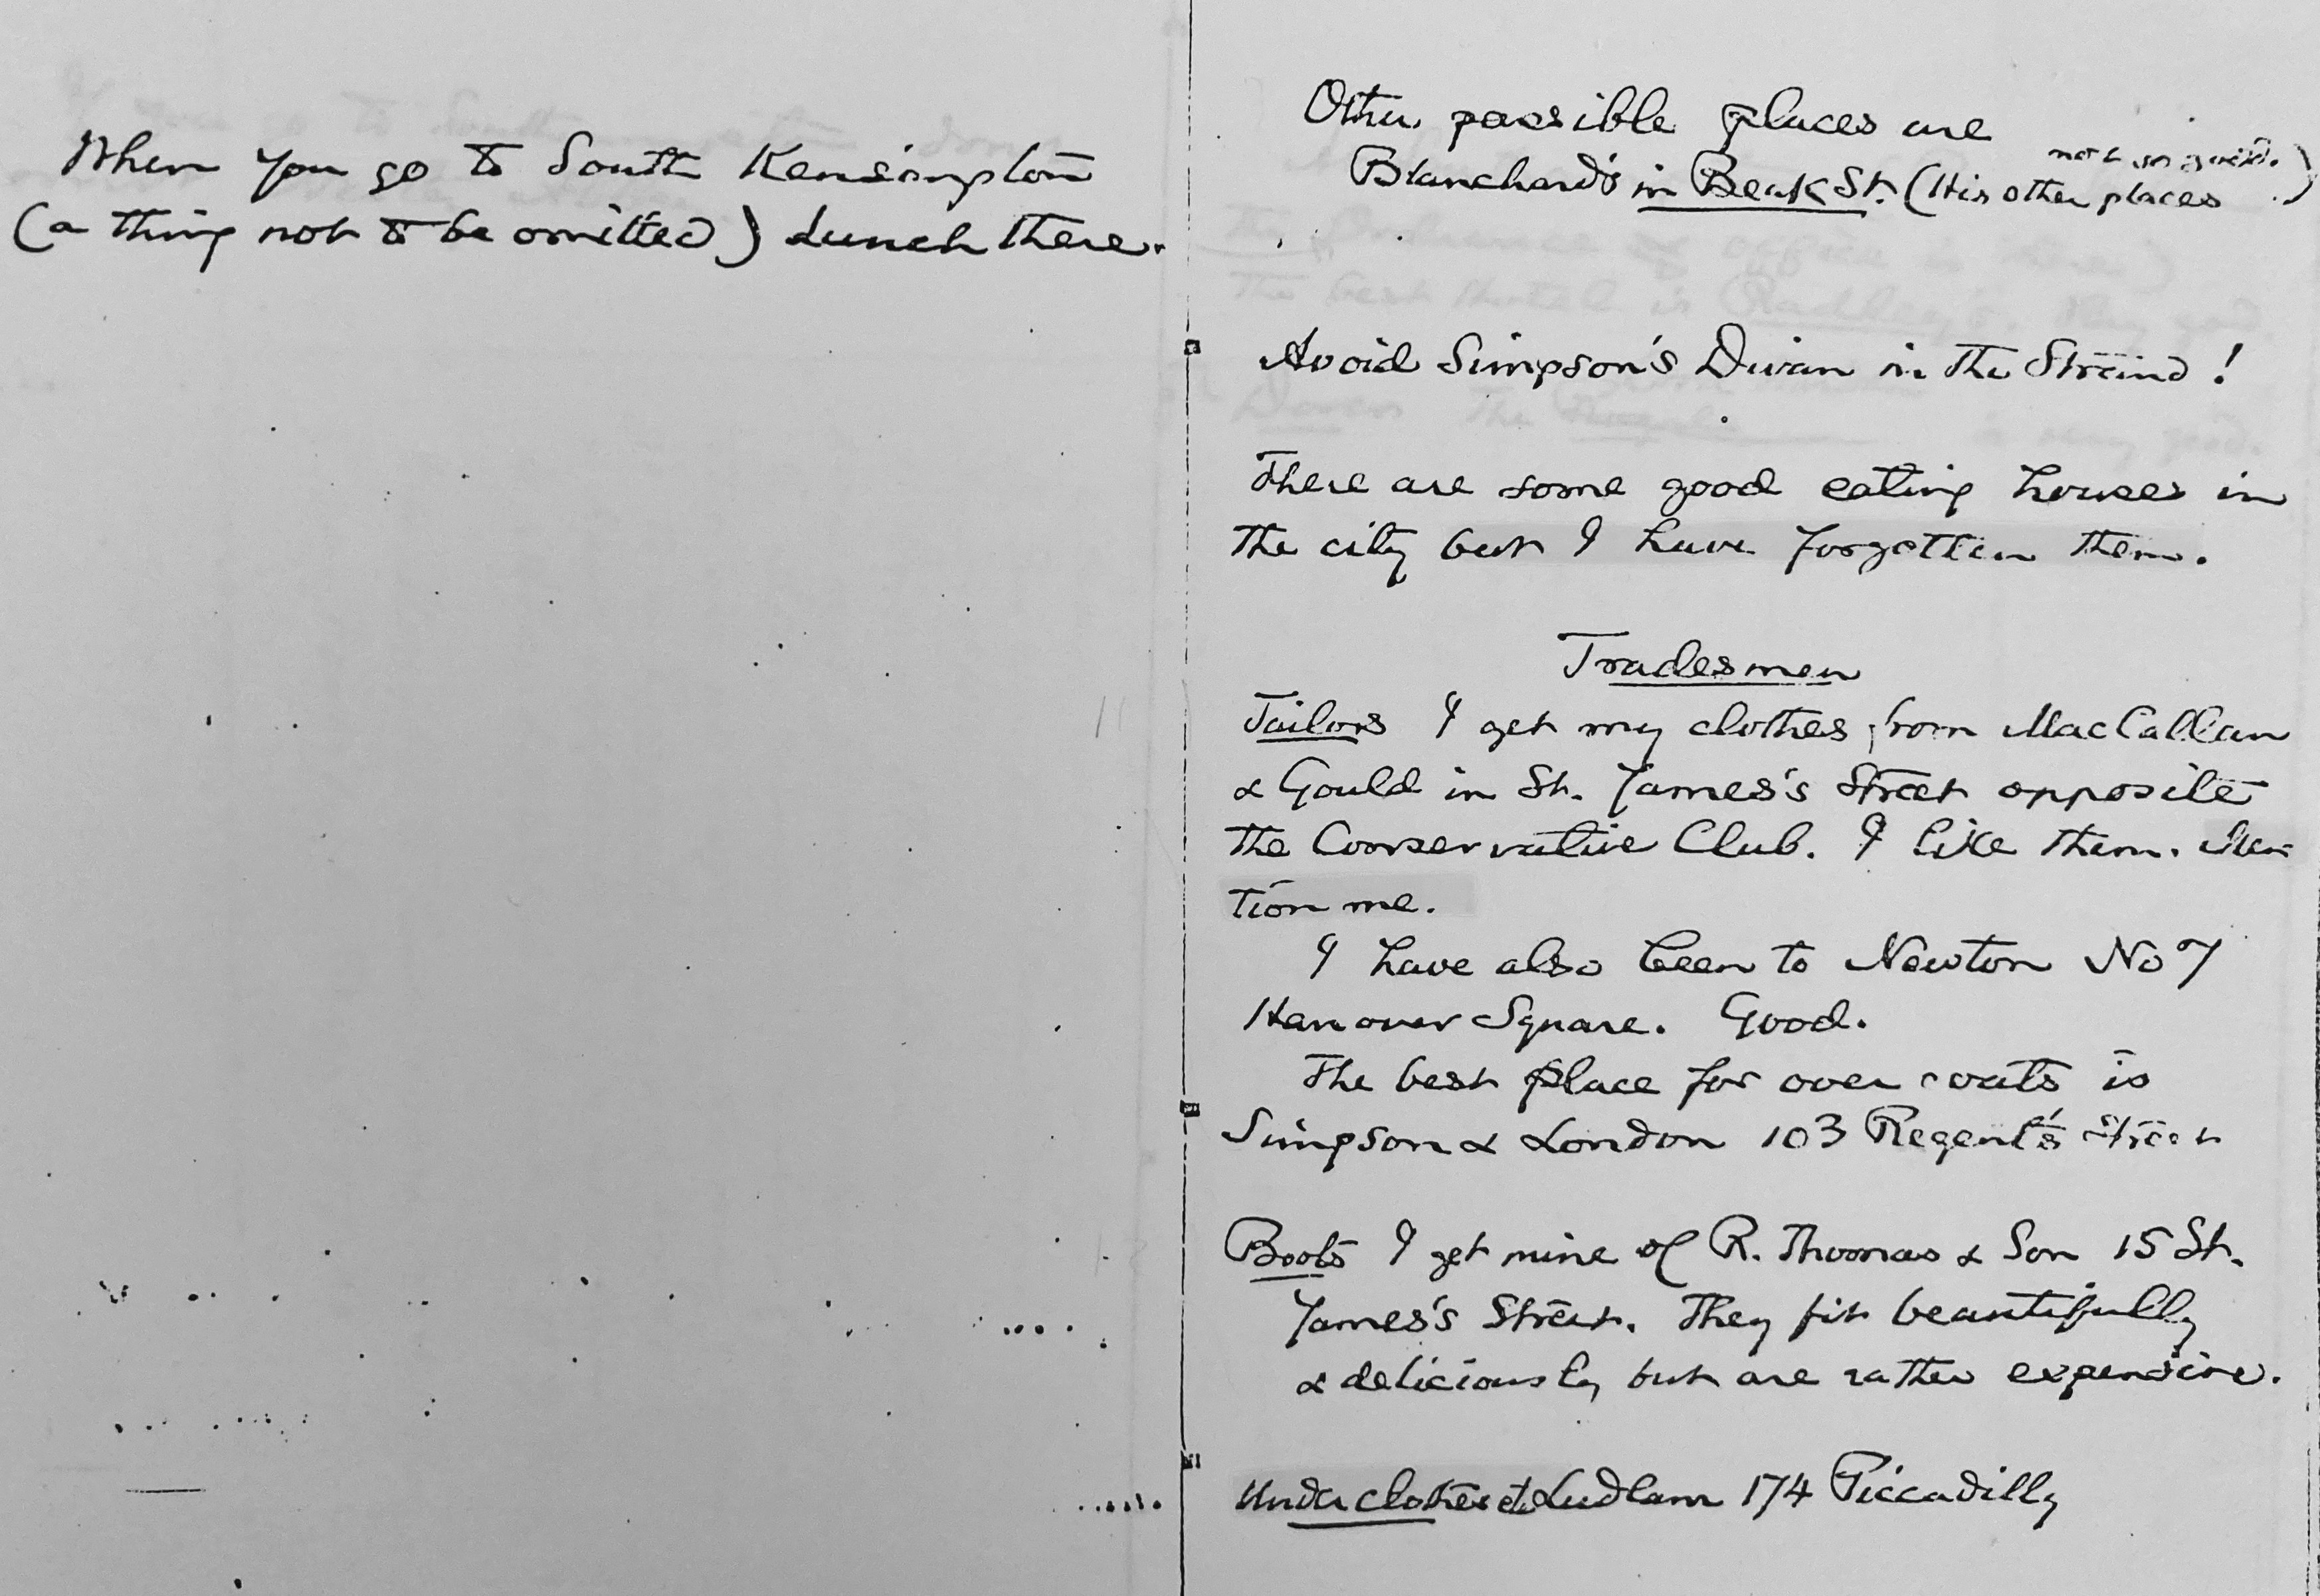 When you go to South Kensington
(a thing not to be omitted) Lunch there.
Other possible places are
Blanchard's in Beak St. (His other places not so good.)
Avoid Simpson's Divan in the Strand!
There are some good eating houses in
the city but I have forgotten them.
Tradesmen
Tailors I get my clothes from MacCallan
& Gould in St. James's Street opposite
the Conservative Club. I like them. Men-
tion me.
I have also been to Newton No 7
Hanover Square. Good.
The best place for over coats is
Simpson & London 103 Regent's Street
Boots I get mine of R. Thomas & Son 15 St.
James's Street. They fit beautifully
& deliciously but are rather expensive.
Underclothes etc Ludlam 174 Piccadilly